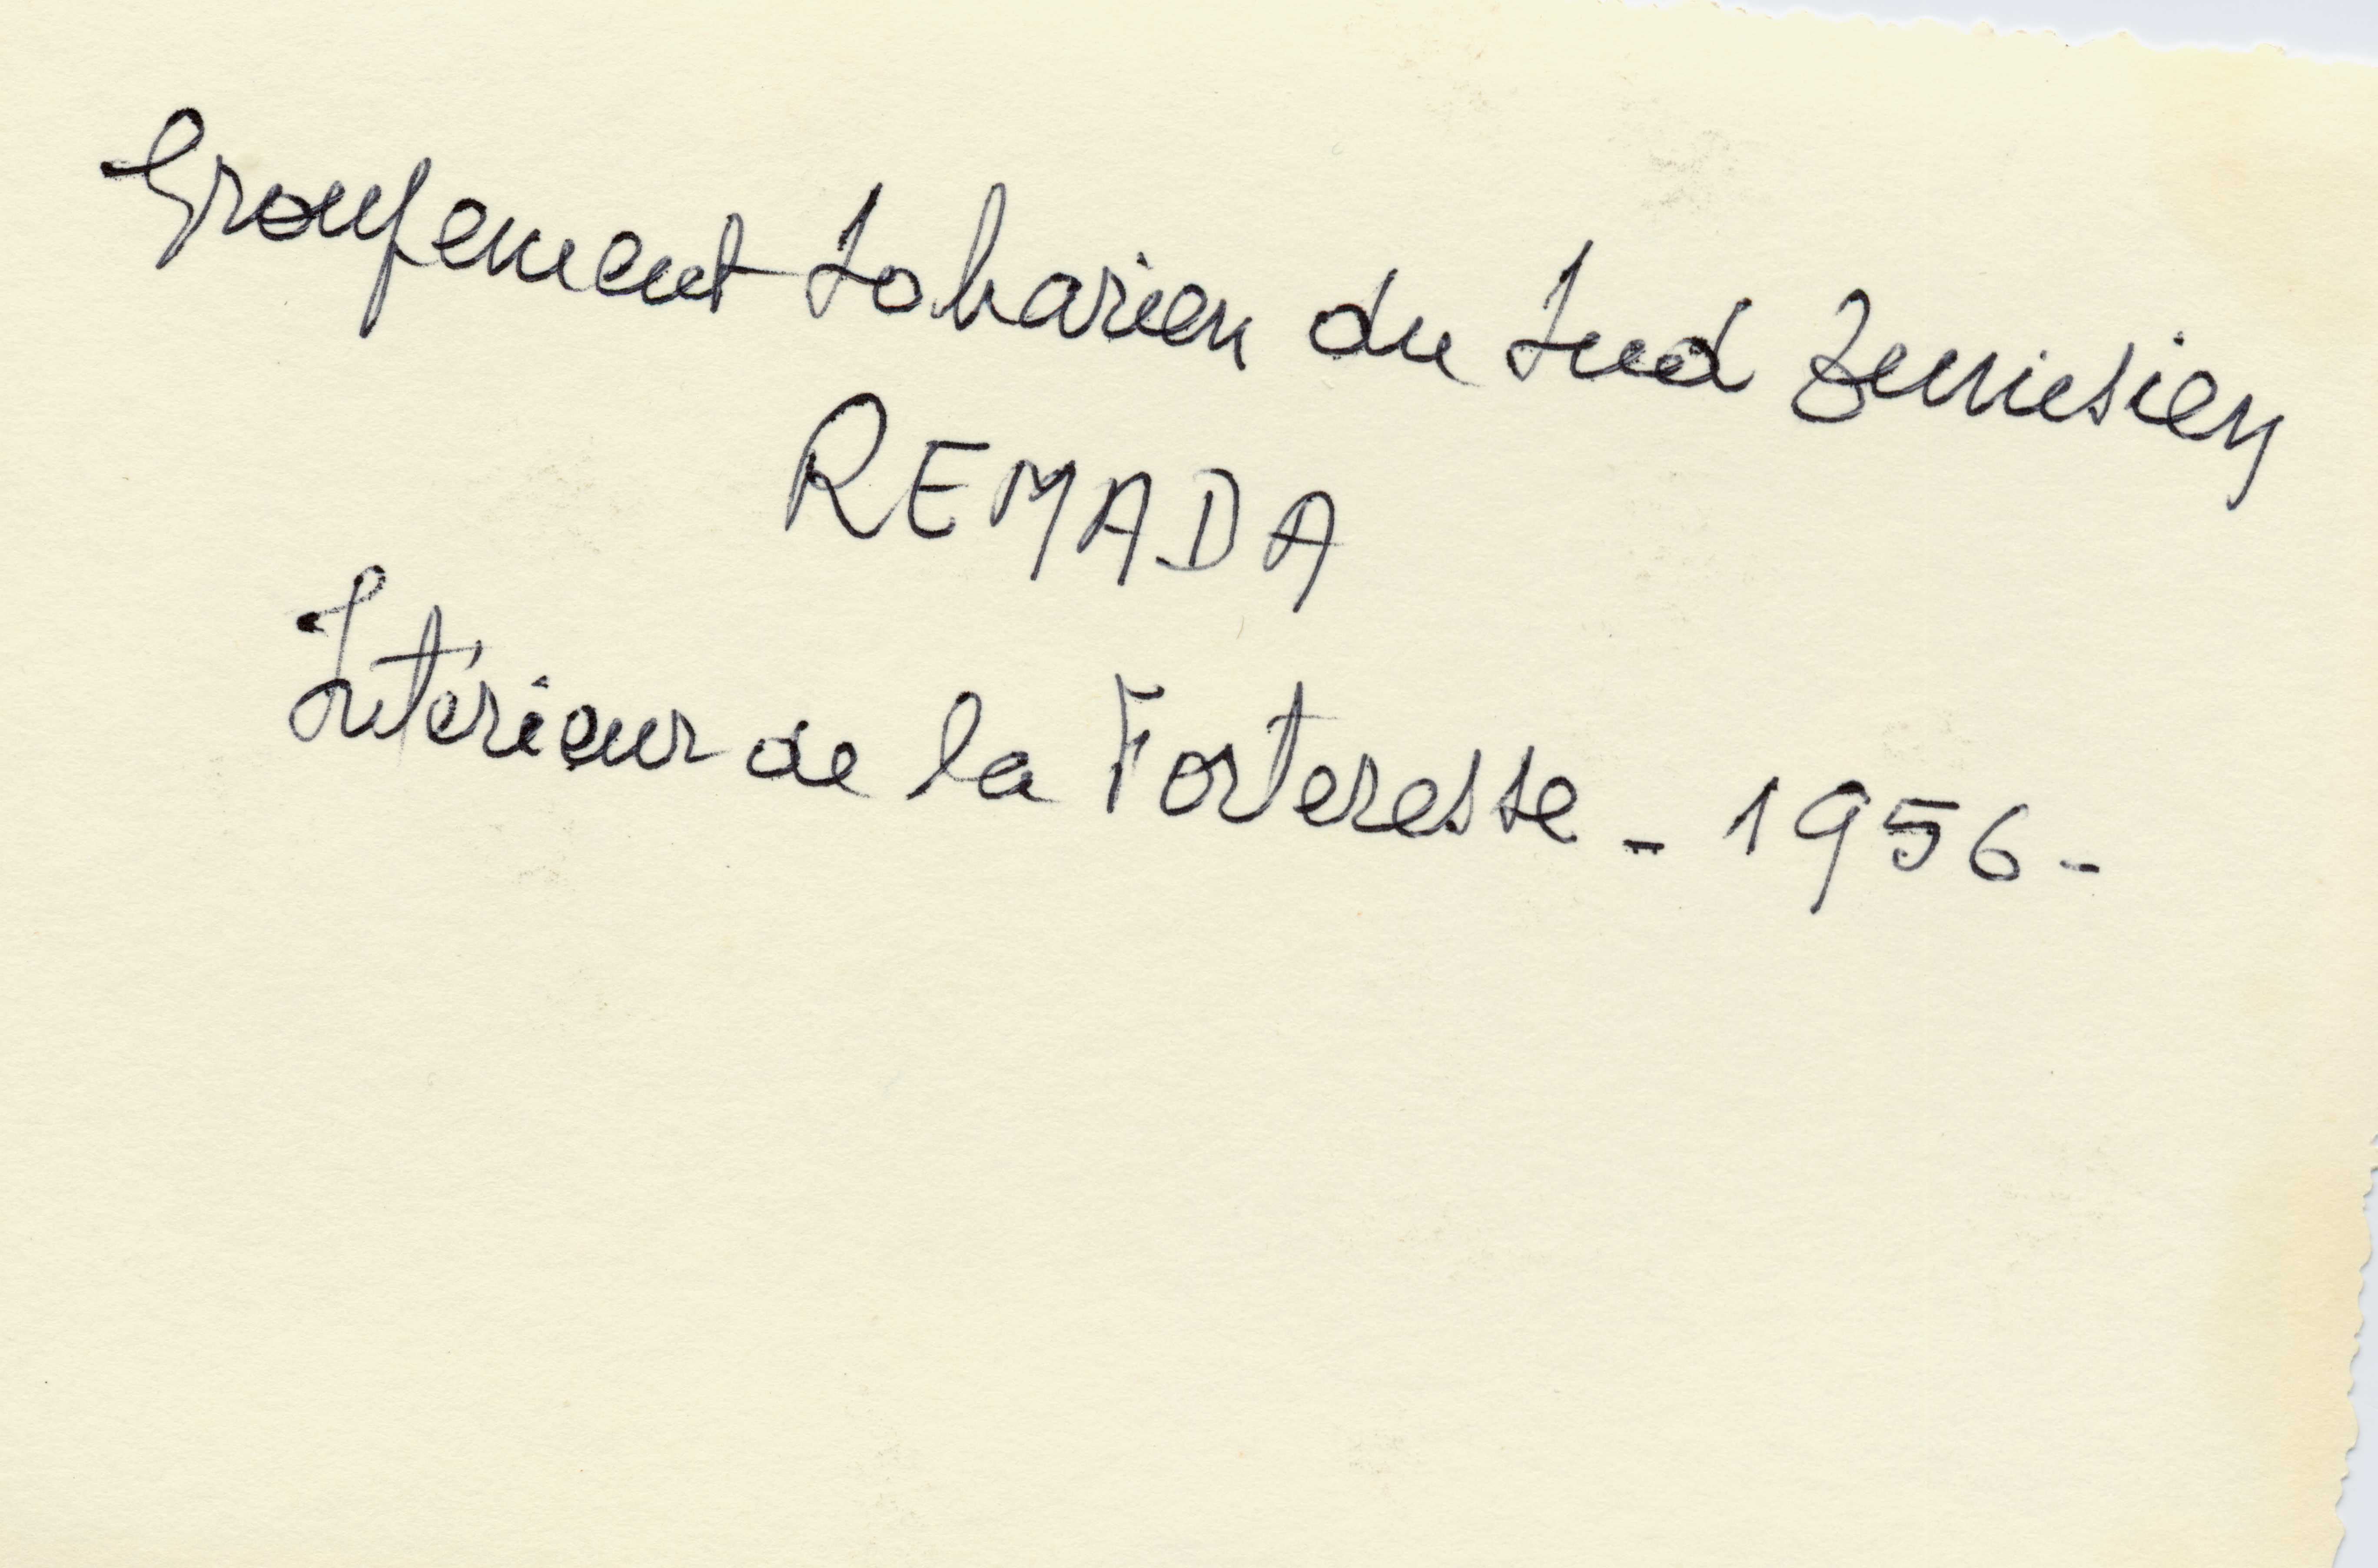 Groupement Saharien du Sud Tunisien
REMADA
Intérieur de la Forteresse - 1956 -